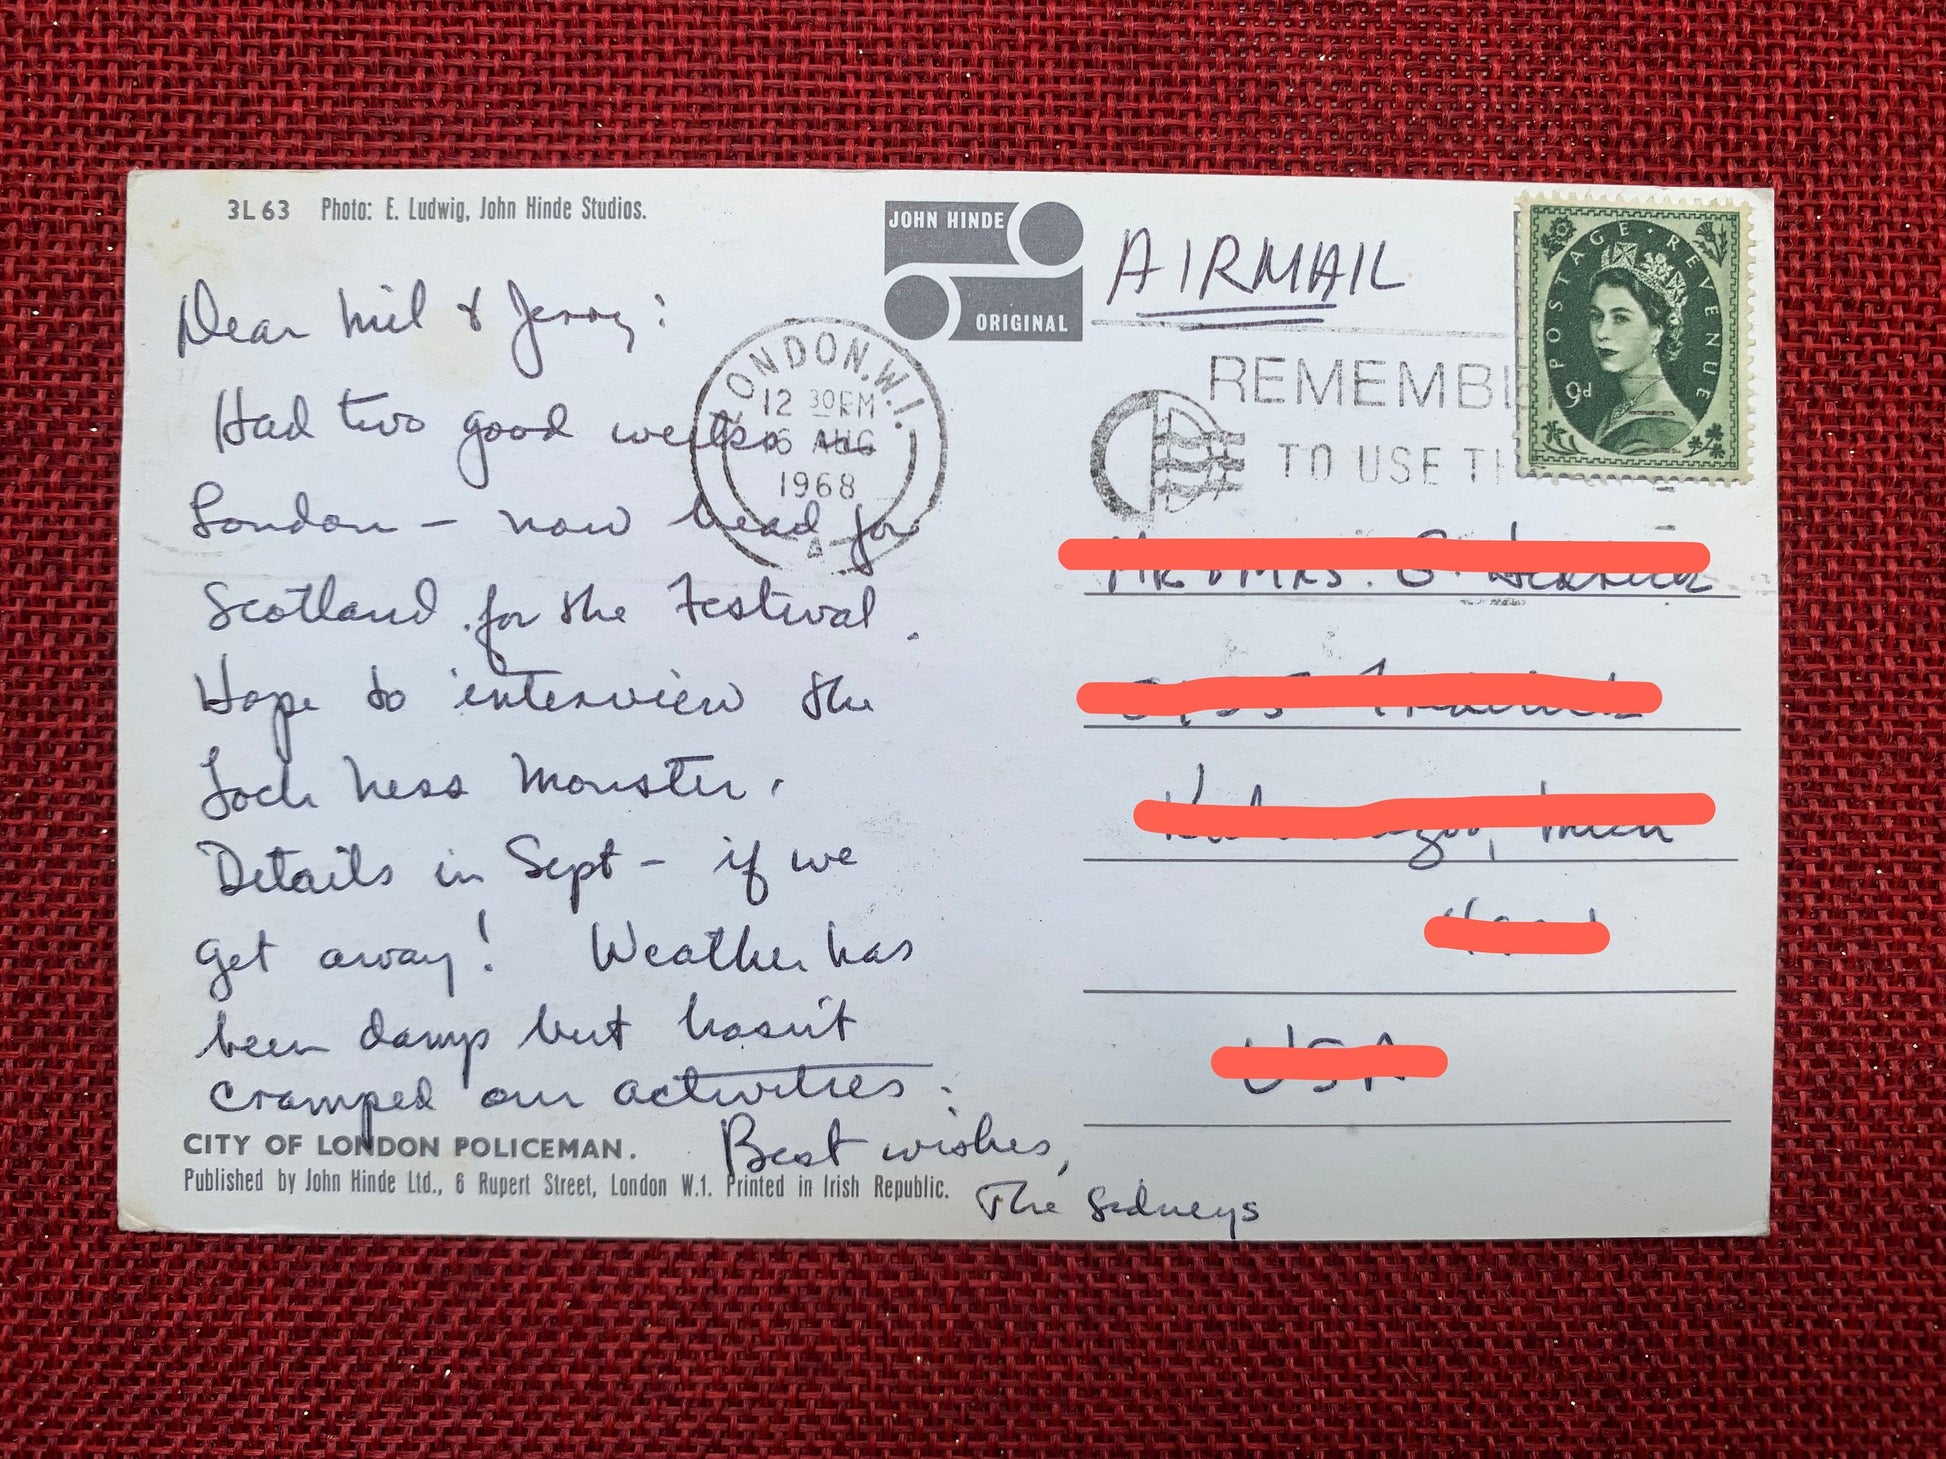 3L63 Photo: E. Ludwig, John Hinde Studios.
JOHN HINDE
ORIGINAL
AIRMAIL
POSTAGE REVENUE
9d
LONDON.W.1.
12 30PM
6 AUG
1968
A
REMEMBE
TO USE TH
Dear Mil & Jerry:
Had two good weeks in
London – now head for
Scotland for the Festival.
Hope to interview the
Loch Ness Monster.
Details in Sept – if we
get away! Weather has
been damp but hasn't
cramped our activities.
Best wishes,
The Sidneys
CITY OF LONDON POLICEMAN.
Published by John Hinde Ltd., 6 Rupert Street, London W.1. Printed in Irish Republic.